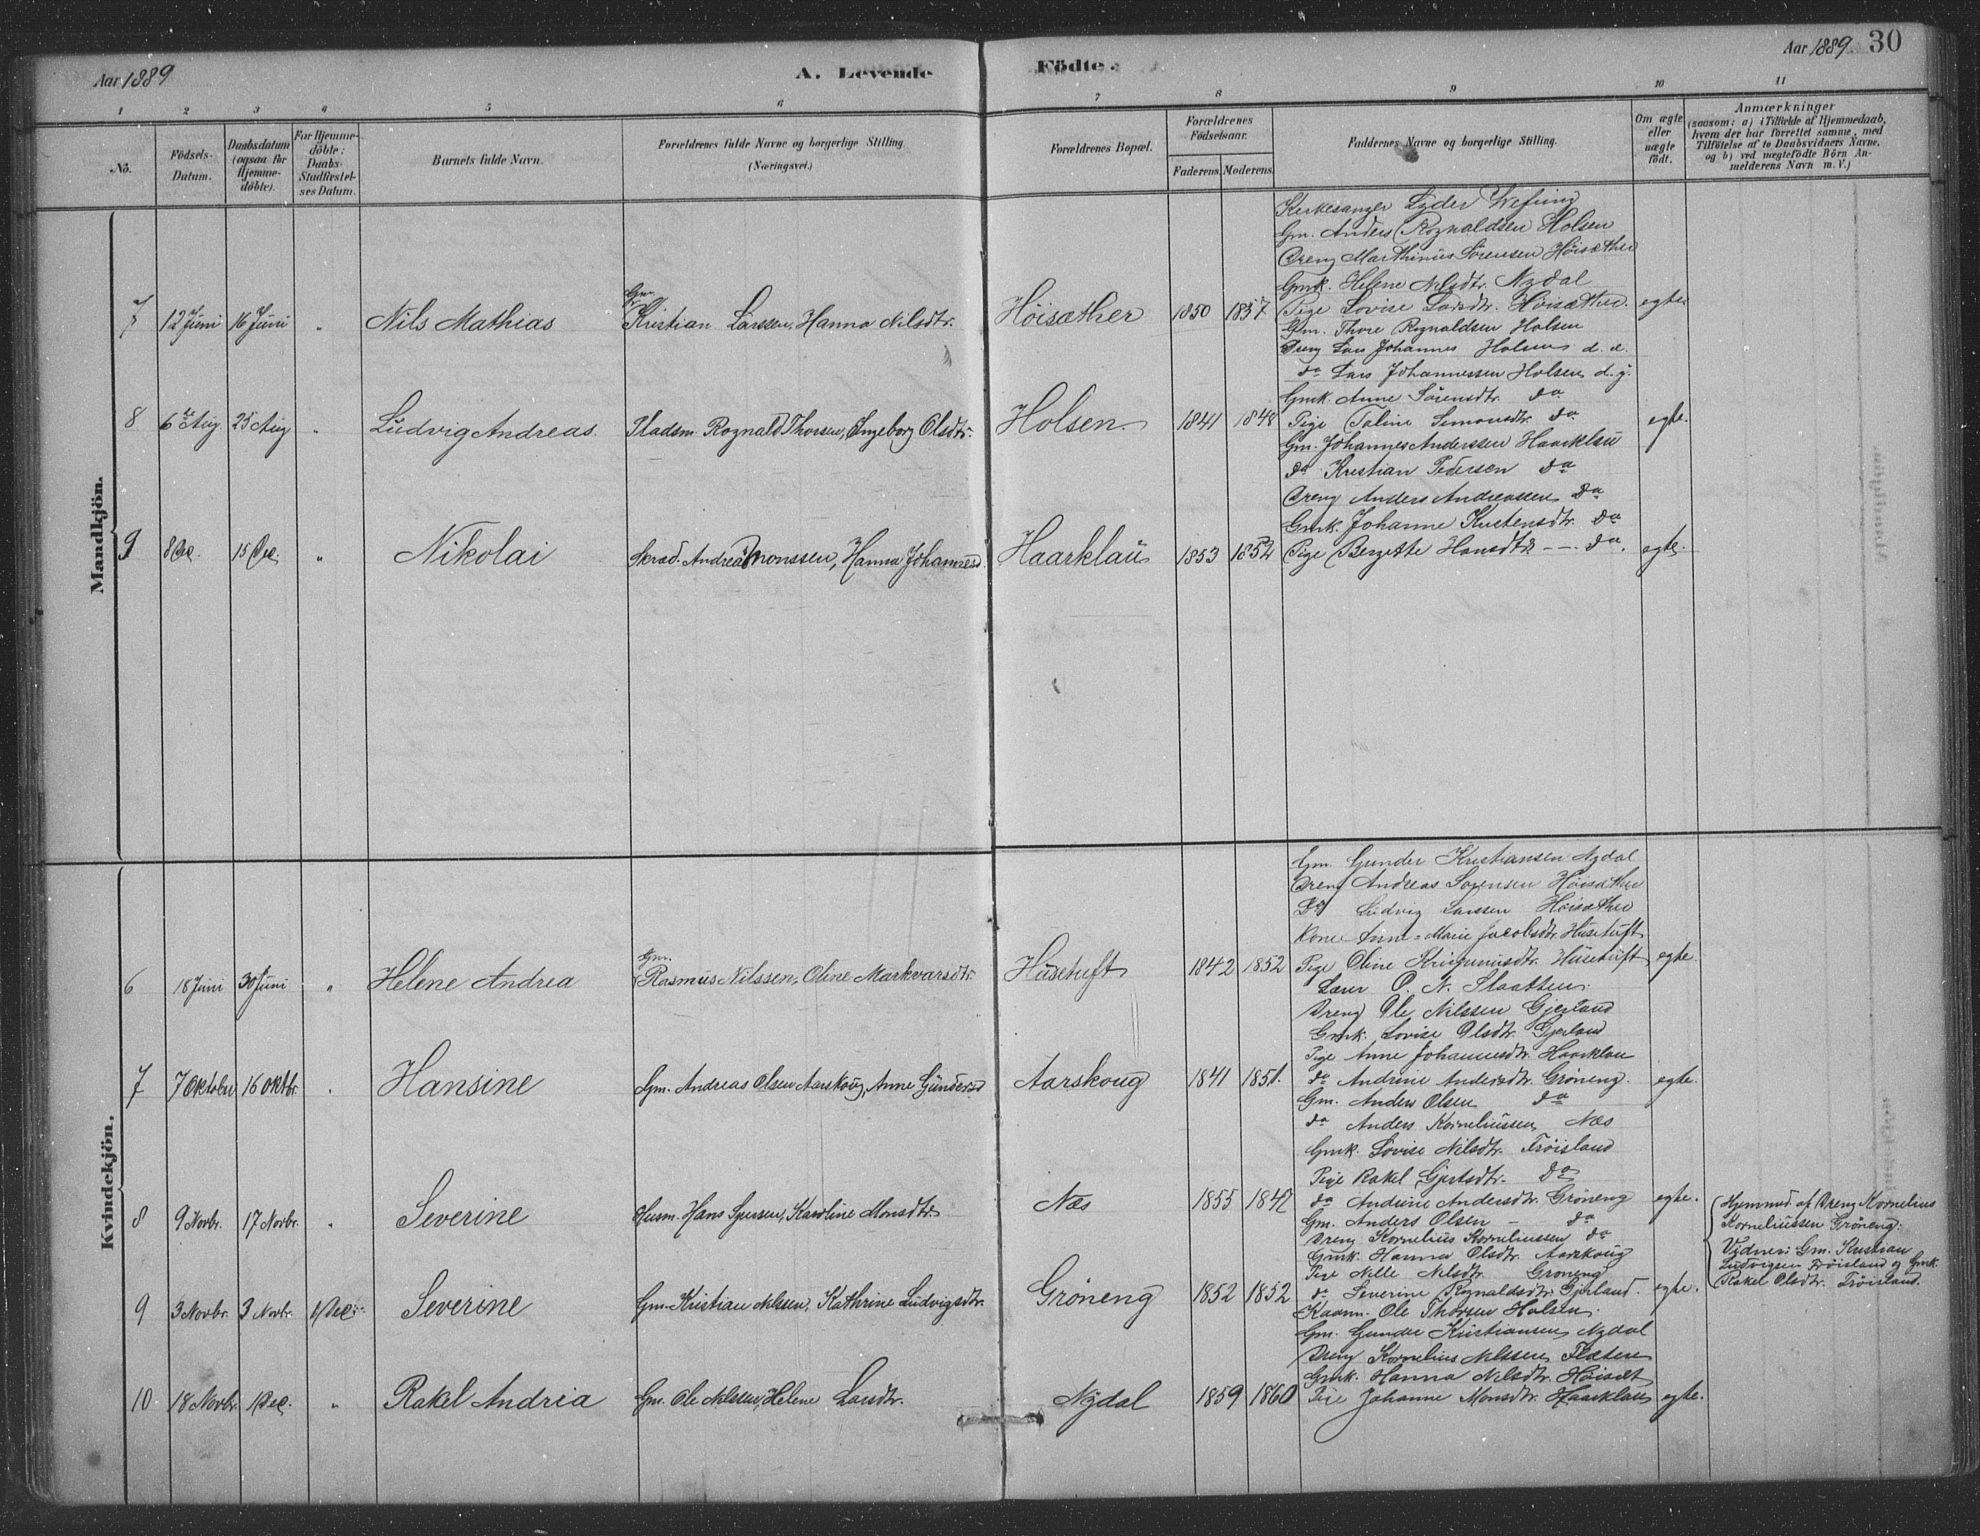 Aar 1889
A. Levende
Födte.
Aar 1889
30
1 2 3 4 5 6 7 8 9 10 11
No.
Födsels-Datum.
Daabsdatum (ogsaa for Hjemme-döbte).
For Hjemme-döbte: Daabs-Stadfæstel-ses Datum.
Barnets fulde Navn.
Forældrenes fulde Navne og borgerlige Stilling. (Næringsvei.)
Forældrenes Bopæl.
Forældrenes Födselsaar.
Faderens. Moderens.
Faddernes Navne og borgerlige Stilling.
Om ægte eller uægte födt.
Anmærkninger
(saasom: a) i Tilfælde af Hjemmedaab,
hvem der har forrettet samme, med
Tilföielse af to Daabsvidners Navne,
og b) ved uægtefödte Börn An-
melderens Navn m. V.)
Mandkjön.
Kirkesanger Lyder Wefring
Gm. Anders Rognaldsen Holsen
Dreng Marthinus Sørensen Höisæther
Gmk. Helene Nilsdtr. Nydal
7 12 Juni 16 Juni " Nils Mathias Gm. Kristian Larssen, Hanna Nilsdtr. Höisæther 1850 1857 Pige Lovise Larsdtr. Höisæther. egte
Gm. Thore Rognaldsen Holsen
Dreng Lars Johannes Holsen d. e.
do Lars Johannessen Holsen d. y.
Gmk. Anne Sörensdtr. do
8 6te Aug. 25 Aug " Ludvig Andreas. Pladsm. Rognald Thorsen, Ingeborg Olsdtr. Holsen. 1841 1848 Pige Taline Simonsdtr. do egte.
Gm. Johannes Anderssen Haarklau
do Kristian Pedersen do
Dreng Anders Andreassen do
Gmk. Johanne Kristensdtr. do
9 8 Dec. 15 Dec. " Nikolai Skræd. Andreas Monssen, Hanna Johannesd. Haarklau 1853 1852 Pige Bergette Hansdtr -- do. egte.
Kvindekjön.
Gm. Gunder Kristiansen Nydal
Dreng Andreas Sørensen Höisæther
Do Ludvig Larssen Höisæther
Kone Anne-Marie Jacobsdtr. Husetuft
6 18 Juni 30 Juni " Helene Andrea Gm. Rasmus Nilssen, Oline Markvarsdtr. Husetuft 1842 1852 Pige Oline Husetuft egte.
Lærer O. N. Slaatten.
Dreng Ole Nilssen Gjerland
Gmk. Lovise Olsdtr. Gjerland
Pige Anne Johannesdtr. Haarklau
7 7 Oktober 16 Oktbr. " Hansine Gm. Andreas Olsen Aarskoug, Anne Gundersd Aarskoug 1841 1851. do Andrine Andersdtr. Gröneng. egte.
Gm. Anders Olsen do
do Anders Korneliussen Næs
Gmk. Lovise Nilsdtr. Fröisland
Pige Rakel Gjertsdtr. do
8 9 Novbr. 17 Novbr. " Severine Husm. Hans Sjursen, Karoline Monsdtr. Næs 1855 1847 do Andrine Andersdtr. Gröneng egte.
Gm. Anders Olsen - do
Dreng Kornelius Korneliussen do
Gmk. Hanna Olsdtr. Aarskoug
Pige Nille Nilsdtr. Gröneng
9 3 Novbr. 3 Novbr. 1 Dec. Severine Gm. Kristian Nilssen, Kathrine Ludvigsdtr. Gröneng 1852 1852 do Severine Rognaldsdtr. Gjerland. egte.
Hjemmed. af Dreng Kornelius
Korneliussen Gröneng.
Vidner: Gm. Kristian
Ludvigsen Fröisland og Gmk.
Rakel Olsdtr. Fröisland.
Kaarm. Ole Thorsen Holsen.
Gm. Gunder Kristiansen Nydal
Dreng Kornelius Nilssen Flaten
Gmk. Hanna Nilsdtr. Höisæt
10 18 Novbr. 1 Dec. " Rakel Andrea Gm. Ole Nilssen, Helene Larsdtr. Nydal 1859 1860 Pige Johanne Monsdtr. Haarklau egte.